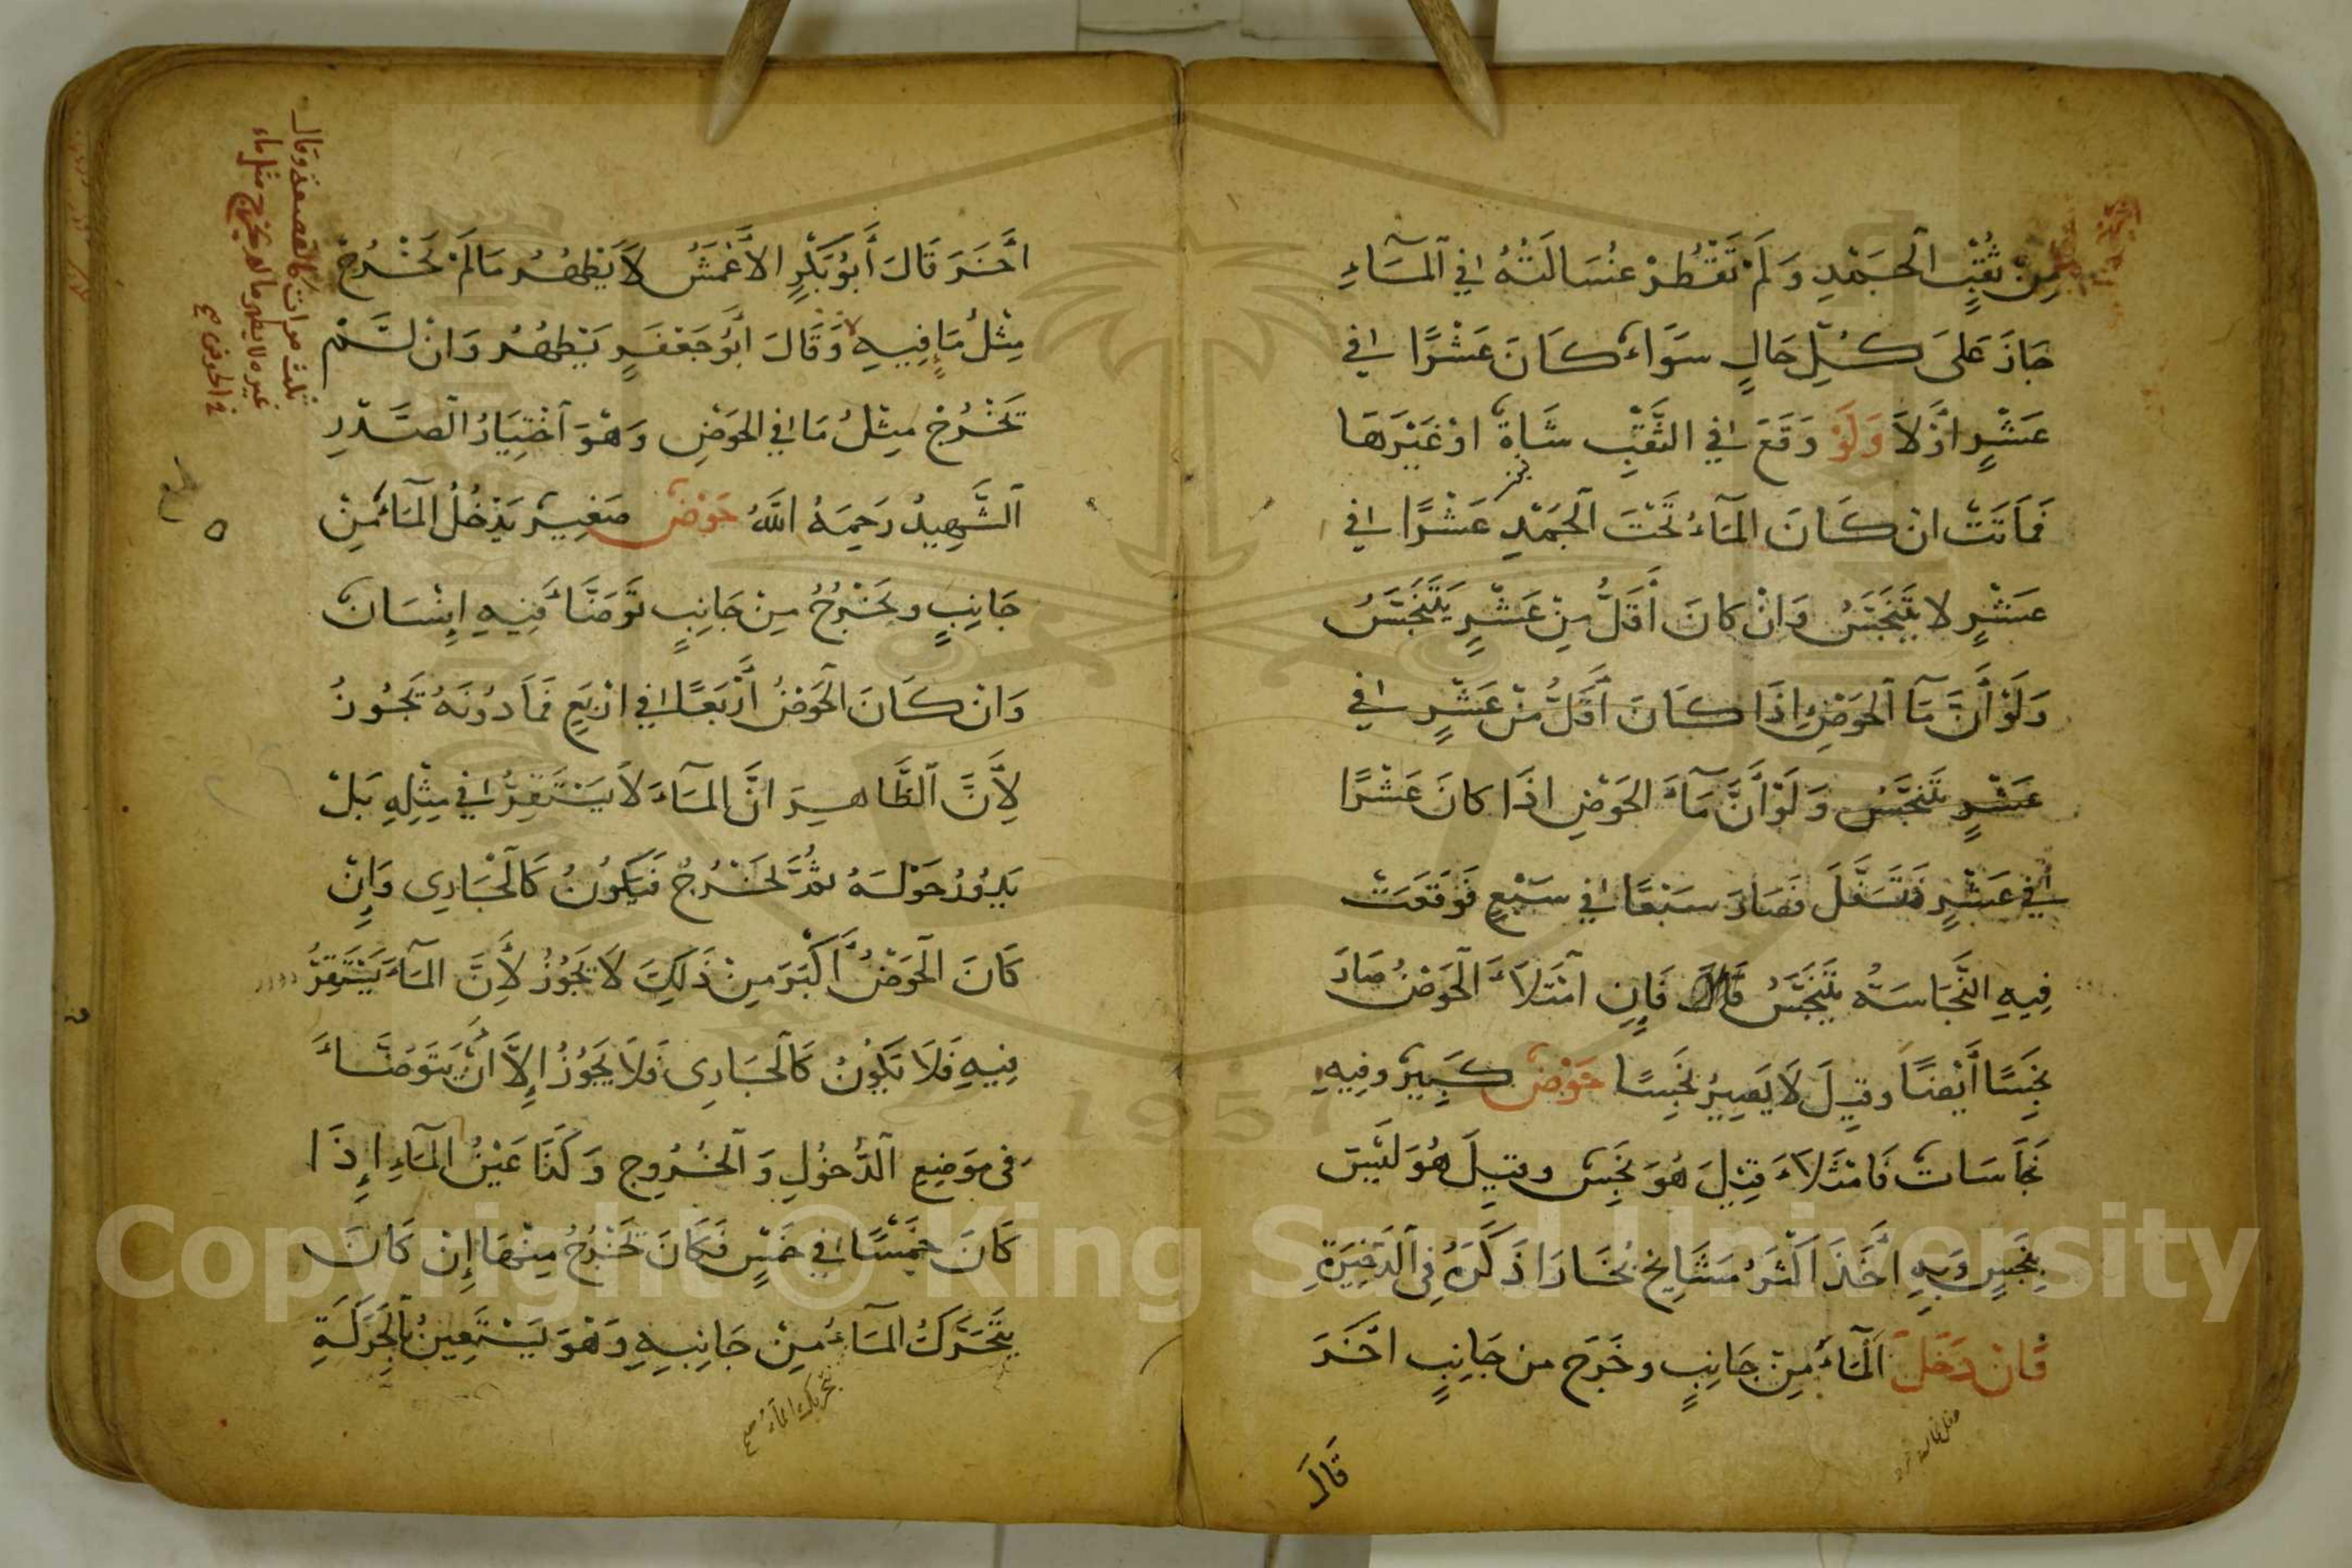 مِنْ ثُقْبِ الْحَمْدِ وَلَمْ تَقْطُرْ غُسَالَتُهُ فِي الْمَآءِ
جَازَ عَلَى كُلِّ حَالٍ سَوَاءٌ كَانَ عَشْرًا فِي
عَشْرٍ اَوْ لاَ وَلَوْ وَقَعَ فِي الثَّقْبِ شَاةٌ اَوْ غَيْرَهَا
فَمَاتَتْ اِنْ كَانَ الْمَآءُ تَحْتَ الْجَمْدِ عَشْرًا فِي
عَشْرٍ لا يَتَنَجَّسُ وَاِنْ كَانَ أَقَلَّ مِنْ عَشْرٍ يَتَنَجَّسُ
وَلَوْ أَنَّ مَآ الْحَوْضِ اِذَا كَانَ أَقَلَّ مِنْ عَشْرٍ فِي
عَشْرٍ تَنَجَّسَ وَلَوْ أَنَّ مَآءَ الْحَوْضِ اِذَا كَانَ عَشْرًا
فِي عَشْرٍ فَتَسَفَّلَ فَصَارَ سَبْعًا فِي سَبْعٍ فَوَقَعَتْ
فِيهِ النَّجَاسَةُ يَتَنَجَّسُ فَاِنِ امْتَلَأَ الْحَوْضُ صَارَ
نَجِسًا أَيْضًا وقِيلَ لاَ يَصِيرُ نَجِسًا حَوْضٌ كَبِيرٌ وفِيهِ
نَجَاسَاتٌ فَامْتَلاَءَ قِيْلَ هُوَ نَجِسٌ وقِيلَ هُوَ لَيْسَ
بِنَجِسٍ وَبِهِ اَخَذَ اَكْثَرُ مَشَايِخِ بُخَارَا ذَكَرَهُ فِي الذَّخِيرَةِ
فَاِنْ دَخَلَ الْمَآءُ مِنْ جَانِبٍ وخَرَجَ مِن جَانِبٍ اٰخَرَ
قَالَ
اٰخَرَ قَالَ أَبُو بَكْرٍ الأَعْمَشُ لاَ يَطْهُرُ مَا لَمْ تَخْرُجْ
مِثْلُ مَا فِيهِ وَقَالَ أَبُو جَعْفَرٍ يَطْهُرُ وَاِنْ لَمْ
تَخْرُجْ مِثْلُ مَا فِي الحَوْضِ وَهْوَ اخْتِيَارُ الصَّدْرِ
الشَّهِيدُ رَحِمَهُ اللَّهُ حَوْضٌ صَغِيرٌ يَدْخُلُ الْمَآءُ مِنْ
جَانِبٍ وَيَخْرُجُ مِنْ جَانِبٍ تَوَضَّاءَ فِيهِ اِنْسَانٌ
وَاِنْ كَانَ الْحَوْضُ أَرْبَعًا فِي اَرْبَعٍ فَمَا دُونَهُ تَجُوزُ
لِأَنَّ الظَّاهِرَ اَنَّ الْمَآءَ لاَ يَسْتَقِرُّ فِي مِثْلِهِ بَلْ
يَدُورُ حَوْلَهُ ثُمَّ تَخْرُجُ فَيَكُونُ كَالْجَارِي وَاِنْ
كَانَ الْحَوْضُ أَكْبَرَ مِنْ ذَلِكَ لاَ تَجُوزُ لِأَنَّ المَآءَ يَسْتَقِرُّ
فِيهِ فَلاَ تَكُونُ كَالْجَارِي فَلاَ يَجُوزُ اِلاَّ اَنْ يَتَوَضَّاءَ
فِي مَوْضِعِ الدُّخُولِ وَالْخُرُوجِ وَكَذَا عَيْنُ الْمَآءِ اِذَا
كَانَ خَمْسًا فِي خَمْسٍ فَكَانَ تَخْرُجُ مِنْهَا إِنْ كَانَ
يَتَحَرَّكُ الْمَآءُ مِنْ جَانِبِهِ وَهْوَ يَسْتَعِينُ بِالْحَرَكَةِ
تحريك المآء صح
ثلث مرات كالقصعة وقال
غيره لا يطهر ما لم يخرج مثل ماء
في الحوض صح
Copyright © King Saud University
1957